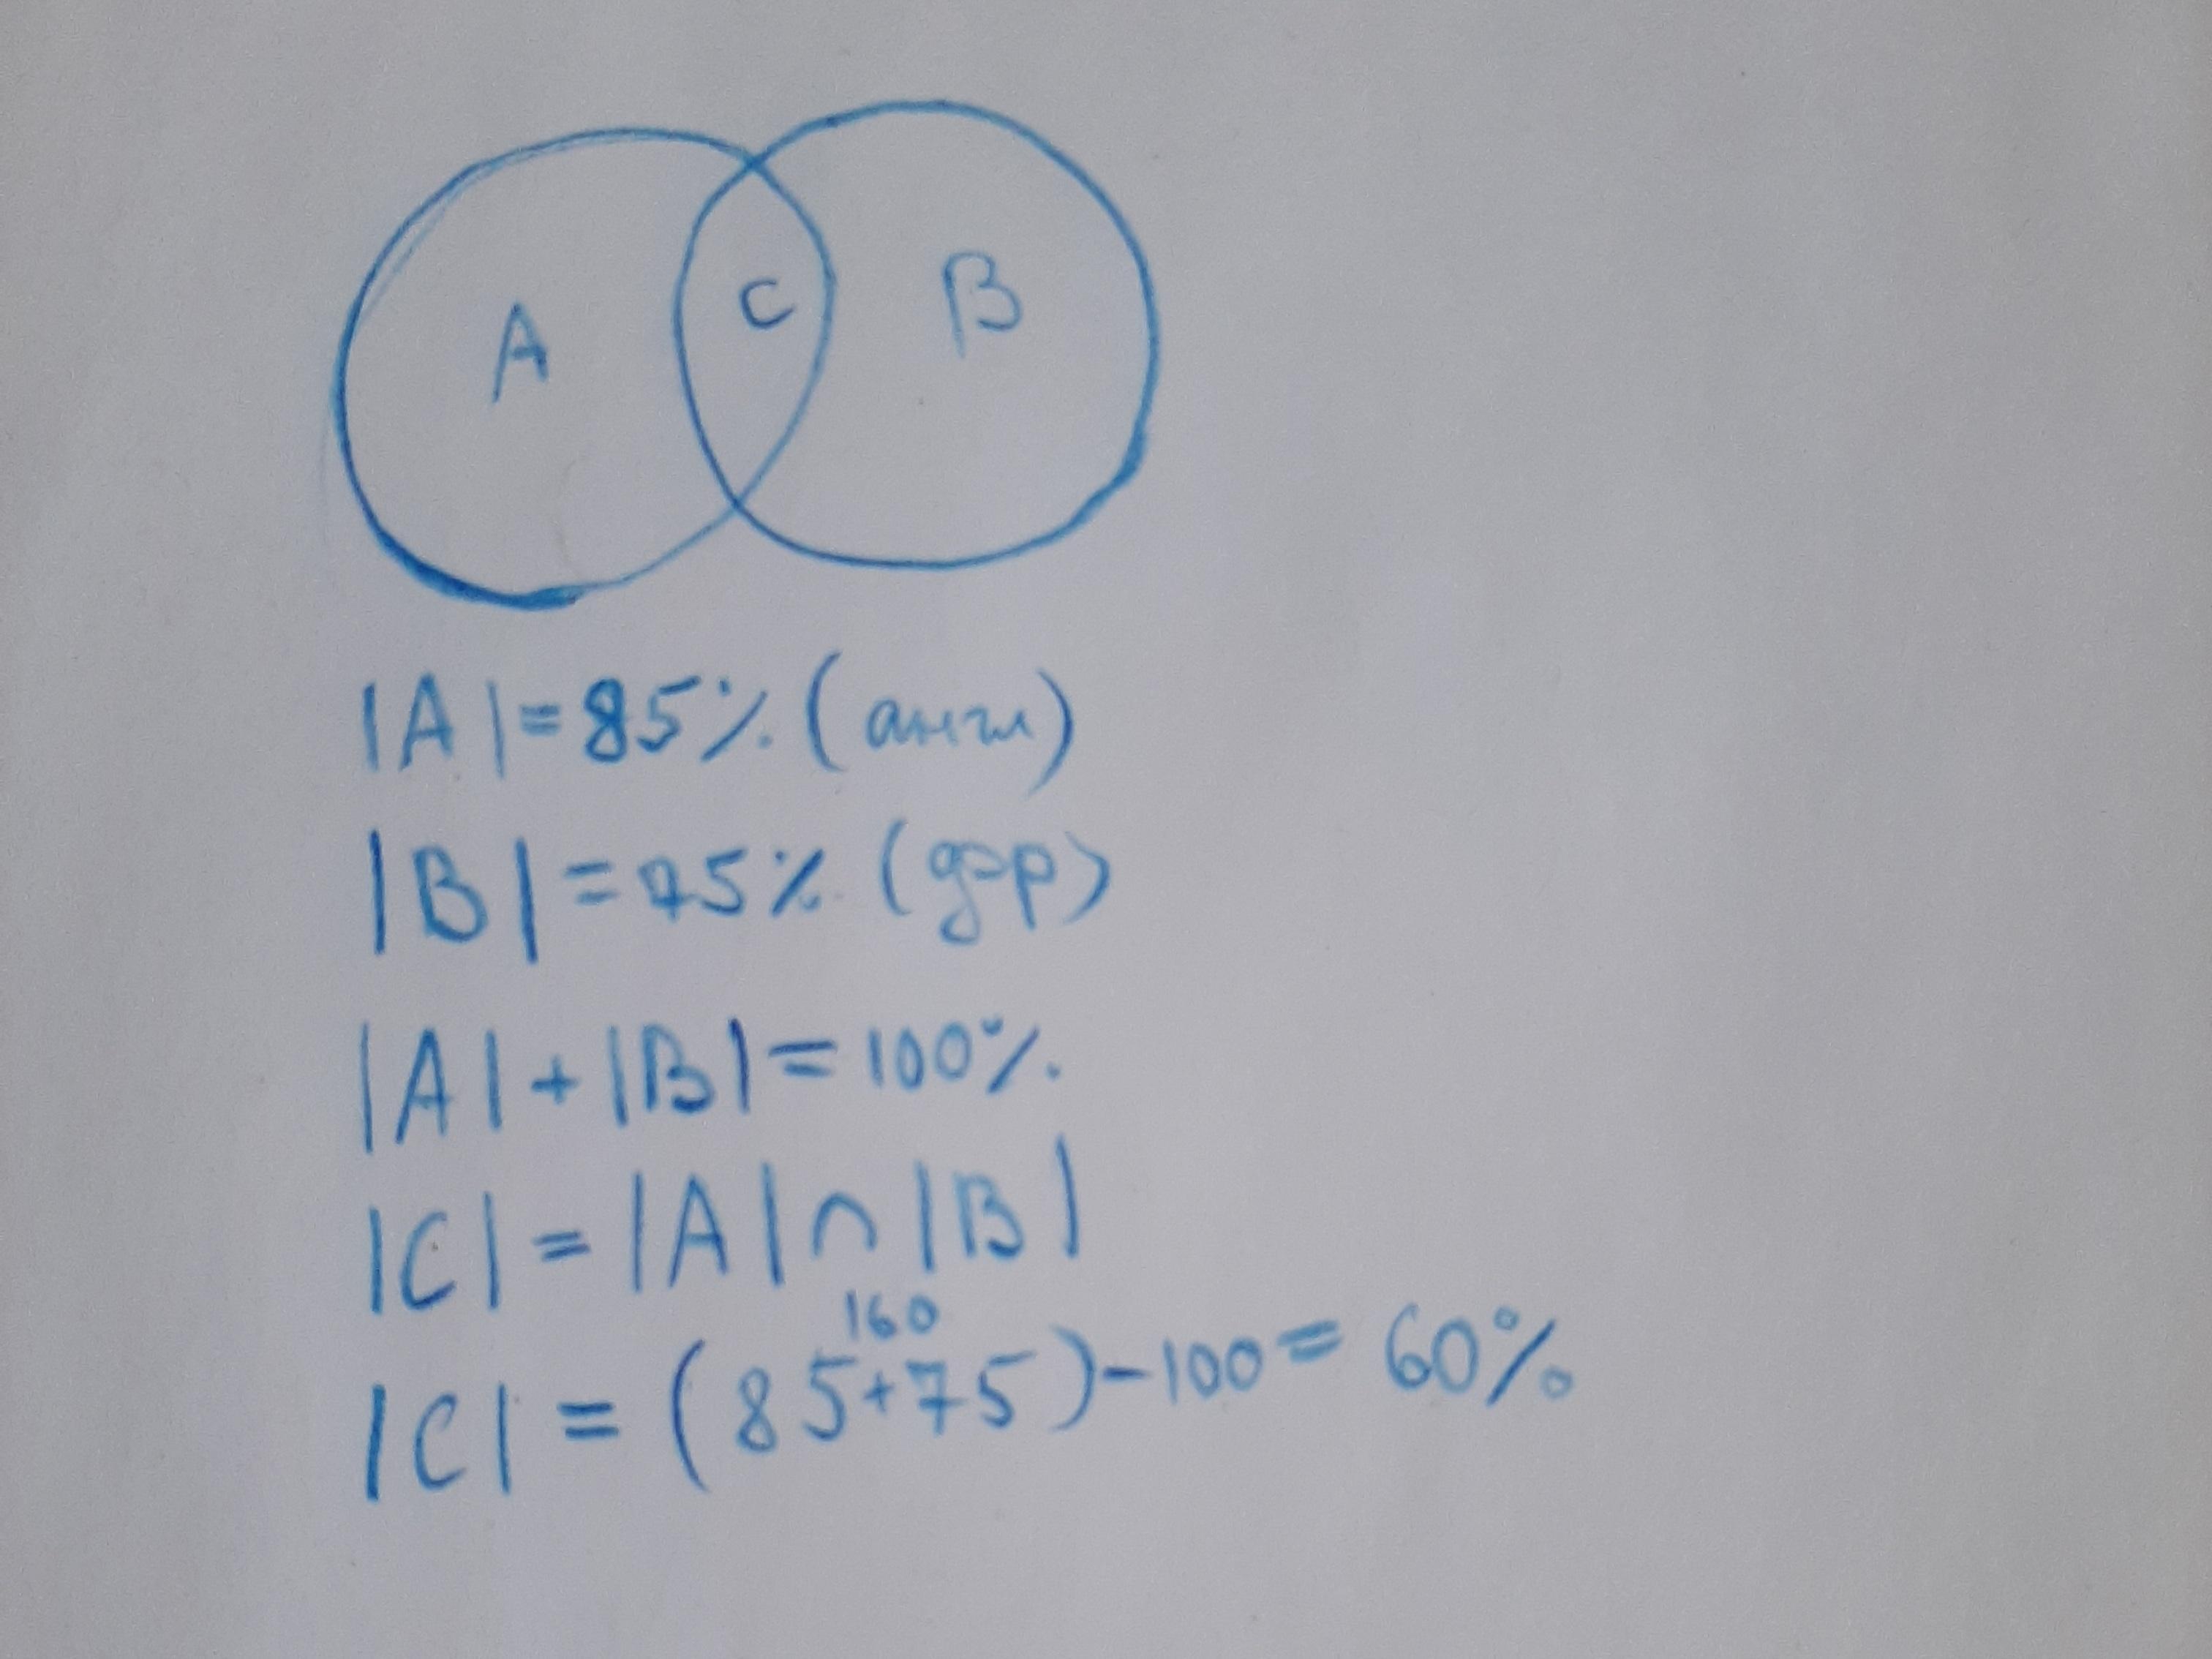 A C B
|A|=85% (англ)
|B|=75% (фр)
|A|+|B|=100%
|C|=|A|∩|B|
160
|C|=(85+75)-100=60%